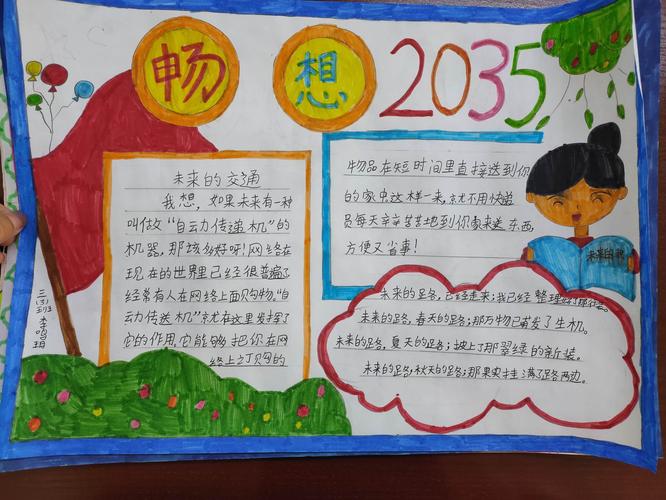 畅想2035
未来的交通
我想，如果未来有一种
叫做“自动传递机”的
机器，那该多好呀！网络在
现在的世界里已经很普遍了
经常有人在网络上面购物，“自
动传送机”就在这里发挥了
它的作用，它能够把你在网
络上订购的
物品在短时间里直接送到你
的家中这样一来，就不用快递
员每天辛辛苦苦地到你家来送东西，
方便又省事！
未来的路
未来的路，已经走来；我已经整理好行装。
未来的路，春天的路；那万物已萌发了生机。
未来的路，夏天的路；披上了那翠绿的新装。
未来的路，秋天的路；那果实挂满了路两边。
三(3)班